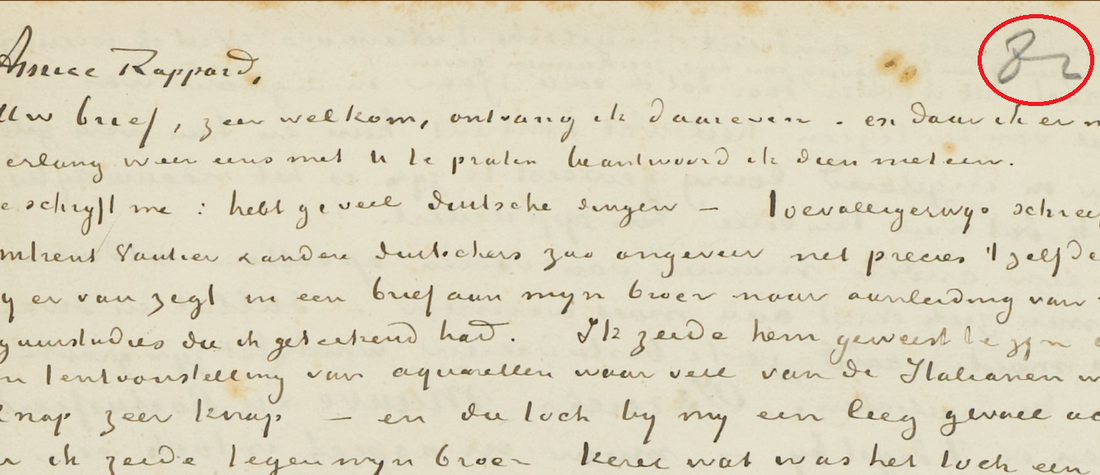 82
Amice Rappard,
Uw brief, zeer welkom, ontvang ik daareven. en daar ik er n
erlang weer eens met U te praten beantwoord ik dien meteen.
e schrijft me: hebt ge veel duitsche dingen – Toevalligerwijs schree
mtrent Vautier & andere duitschers zoo ongeveer net precies 't zelfde
y er van zegt in een brief aan mijn broer naar aanleiding van
uurstudies die ik geteekend had. Ik zeide hem geweest te zijn
n tentoonstelling van aquarellen waar veel van de Italianen w
knap zeer knap – en die toch bij mij een leeg gevoel ac
n ik zeide tegen mijn broer kerel wat was het toch een